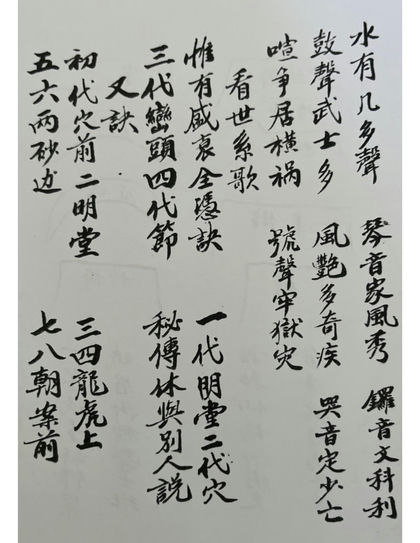 水有几多聲 琴音家風秀 鑼音文科利
鼓聲武士多 風艷多奇疾 哭音定少亡
喧争居横祸 號聲牢獄灾
看世系歌
惟有盛衰全憑訣 一代明堂二代穴
三代巒頭四代節 秘傳休與別人説
又訣
初代穴前二明堂 三四龍虎上
五六兩砂边 七八朝案前